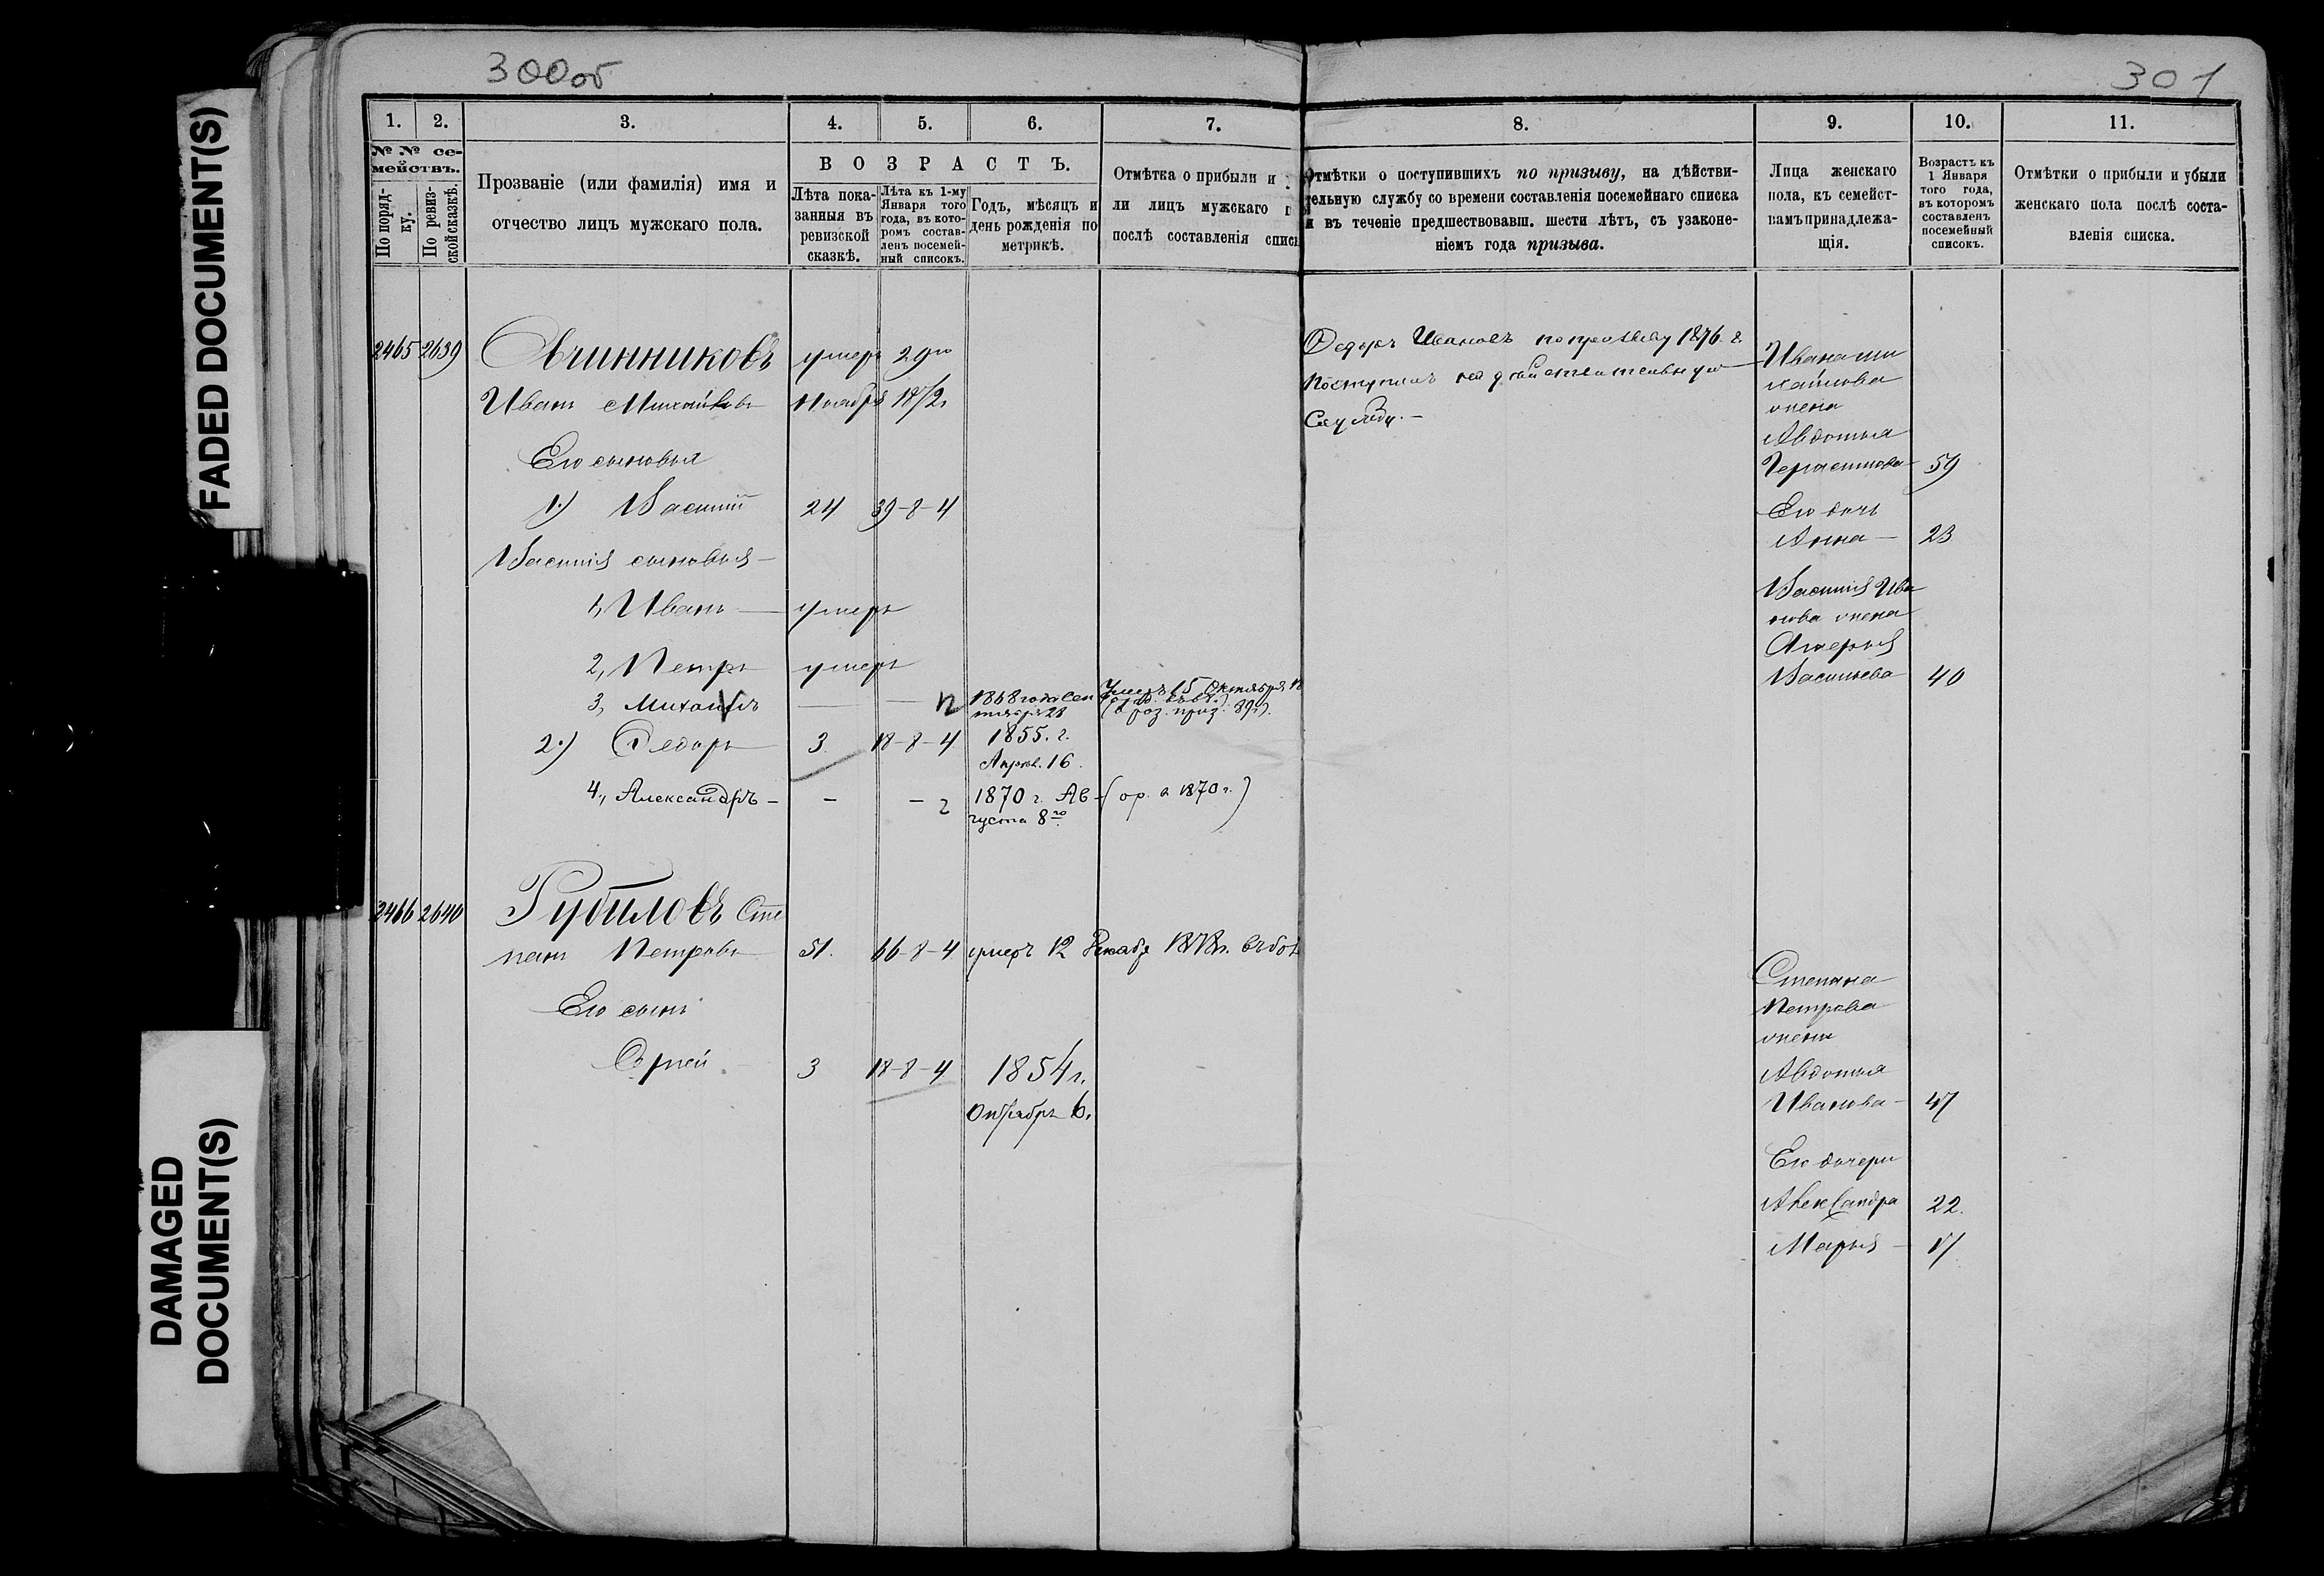 FADED DOCUMENT(S)
DAMAGED
DOCUMENT(S)
300об
301
1. 2. 3. 4. 5. 6. 7. 8. 9. 10. 11.
№ № се-
мействъ.
По поряд-
ку.
По ревиз-
ской сказкѣ.
Прозваніе (или фамилія) имя и
отчество лицъ мужскаго пола.
ВОЗРАСТЪ.
Лѣта пока-
занныя въ
ревизской
сказкѣ.
Лѣта къ 1-му
Января того
года, въ кото-
ромъ состав-
ленъ посемей-
ный списокъ.
Годъ, мѣсяцъ и
день рожденія по
метрикѣ.
Отмѣтка о прибыли и
ли лицъ мужскаго п
послѣ составленія списк
Отмѣтки о поступившихъ по призыву, на дѣйстви-
тельную службу со времени составленія посемейнаго списка
и въ теченіе предшествовавш. шести лѣтъ, съ узаконе-
ніемъ года призыва.
Лица женскаго
пола, къ семейст-
вамъ принадлежа-
щія.
Возрастъ къ
1 Января
того года,
въ которомъ
составленъ
посемейный
списокъ.
Отмѣтки о прибыли и убыли
женскаго пола послѣ соста-
вленія списка.
2465 2639 Овчинниковъ умеръ 29го
Иванъ Михайловъ Ноября 1872.
Его сыновья
1.) Василій 24 39-8-4
Василія сыновья
1, Иванъ умеръ
2, Петръ умеръ
3, Михаилъ — — 1868 года Сен
тября 28
Умеръ 15 Октября
2.) Федоръ 3 18-8-4 1855. г.
Апрѣл. 16.
4, Александръ - - - 2 1870 г. Ав-
густа 8го
2466 2640 Рубиловъ Сте
панъ Петровъ 51. 66-8-4 умеръ 12 Декабр
Его сынъ
Сергей 3 18-8-4 1854 г.
Октября 6.
Федоръ Ивановъ по призыву 1876 г.
Поступилъ на дѣйствительную
Службу.-
Ивана Ми
хайлова
жена
Авдотья
Герасимова 59
Его дочь
Анна 23
Василія Ива
нова жена
Васильева 40
Степана
Петрова
жена
Авдотья
Иванова 47
Его дочери
Александра 22.
Марья 17